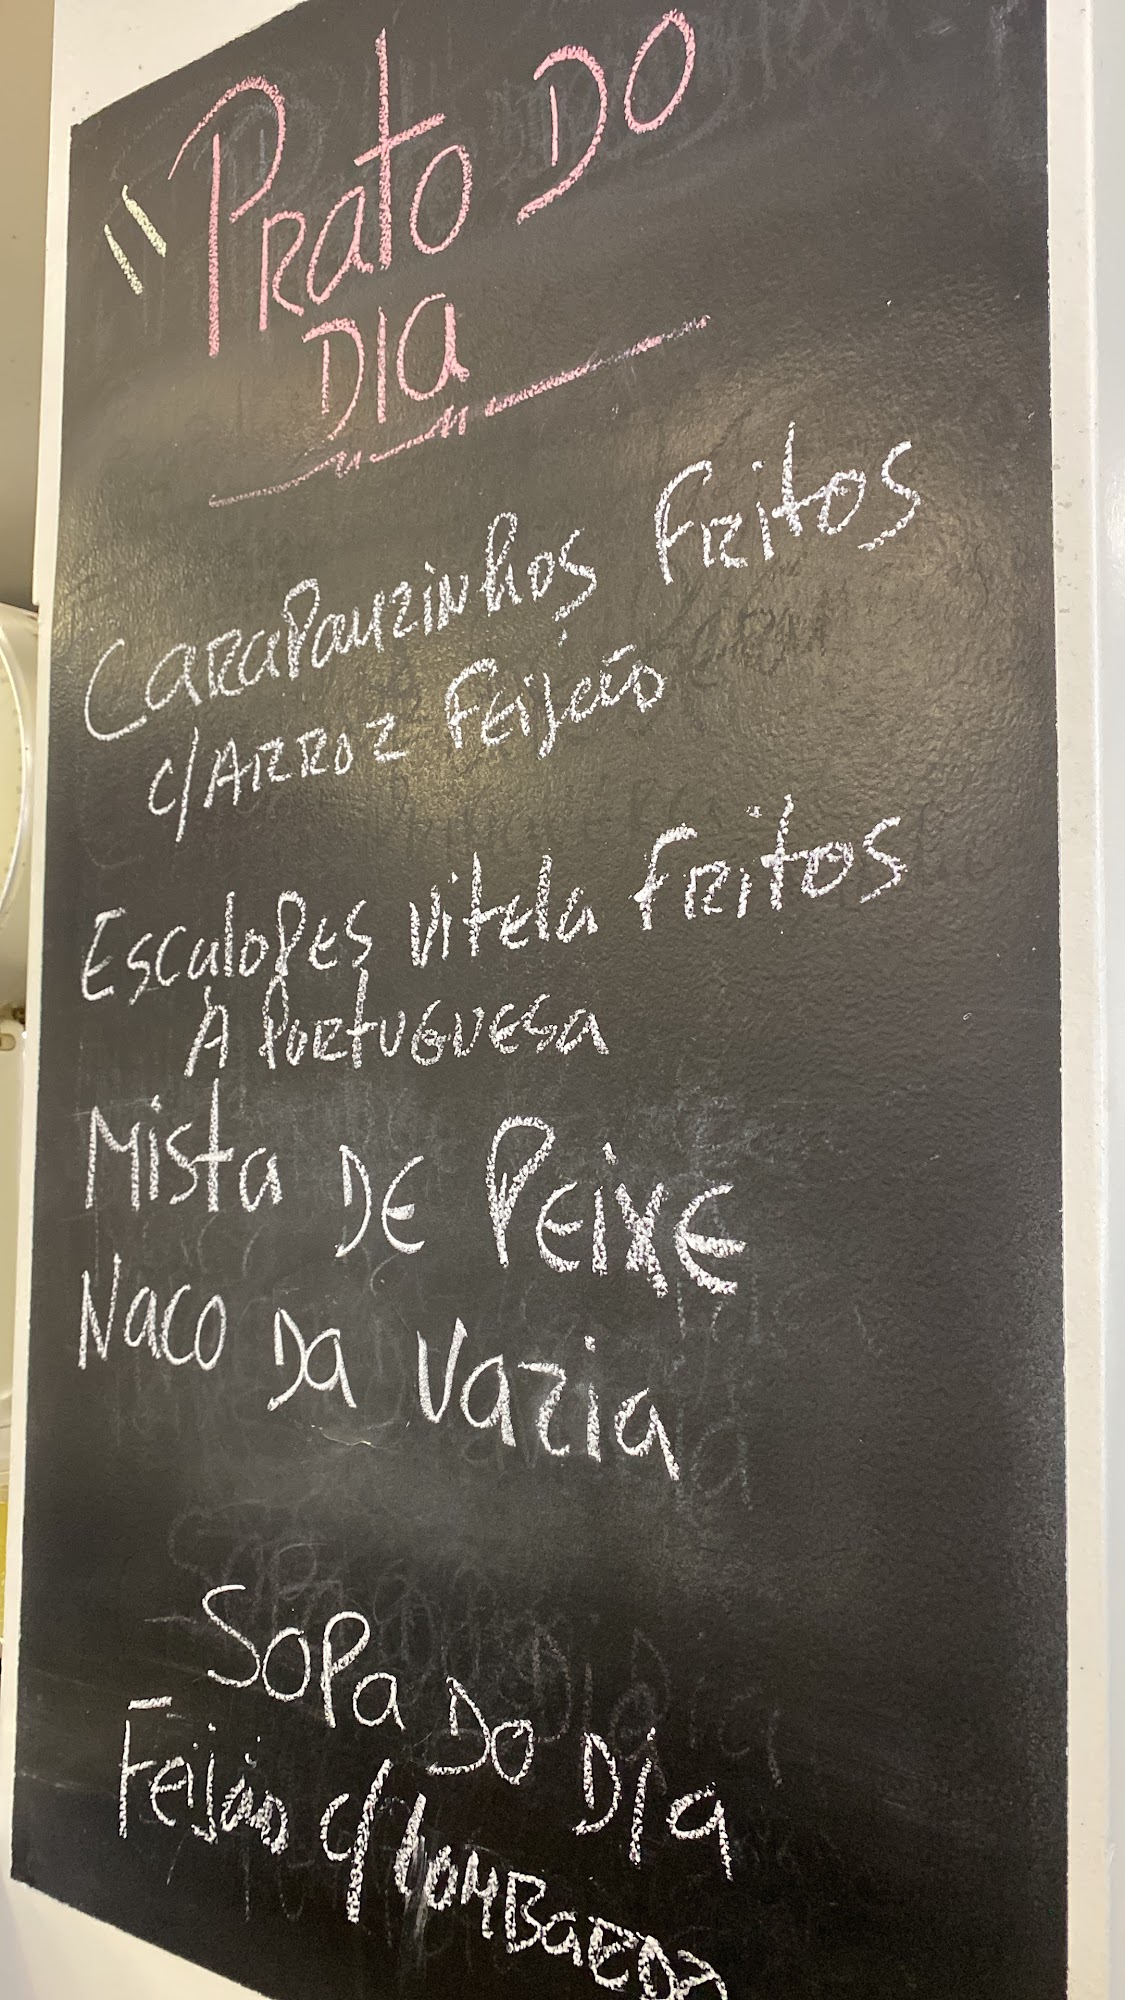 "Prato DO
DIA
Carapauzinhos Fritos
c/ARROZ Feijão
Escalopes Vitela Fritos
À Portuguesa
Mista DE Peixe
Naco Da Vazia
Sopa Do Dia
Feijão c/Lombarda